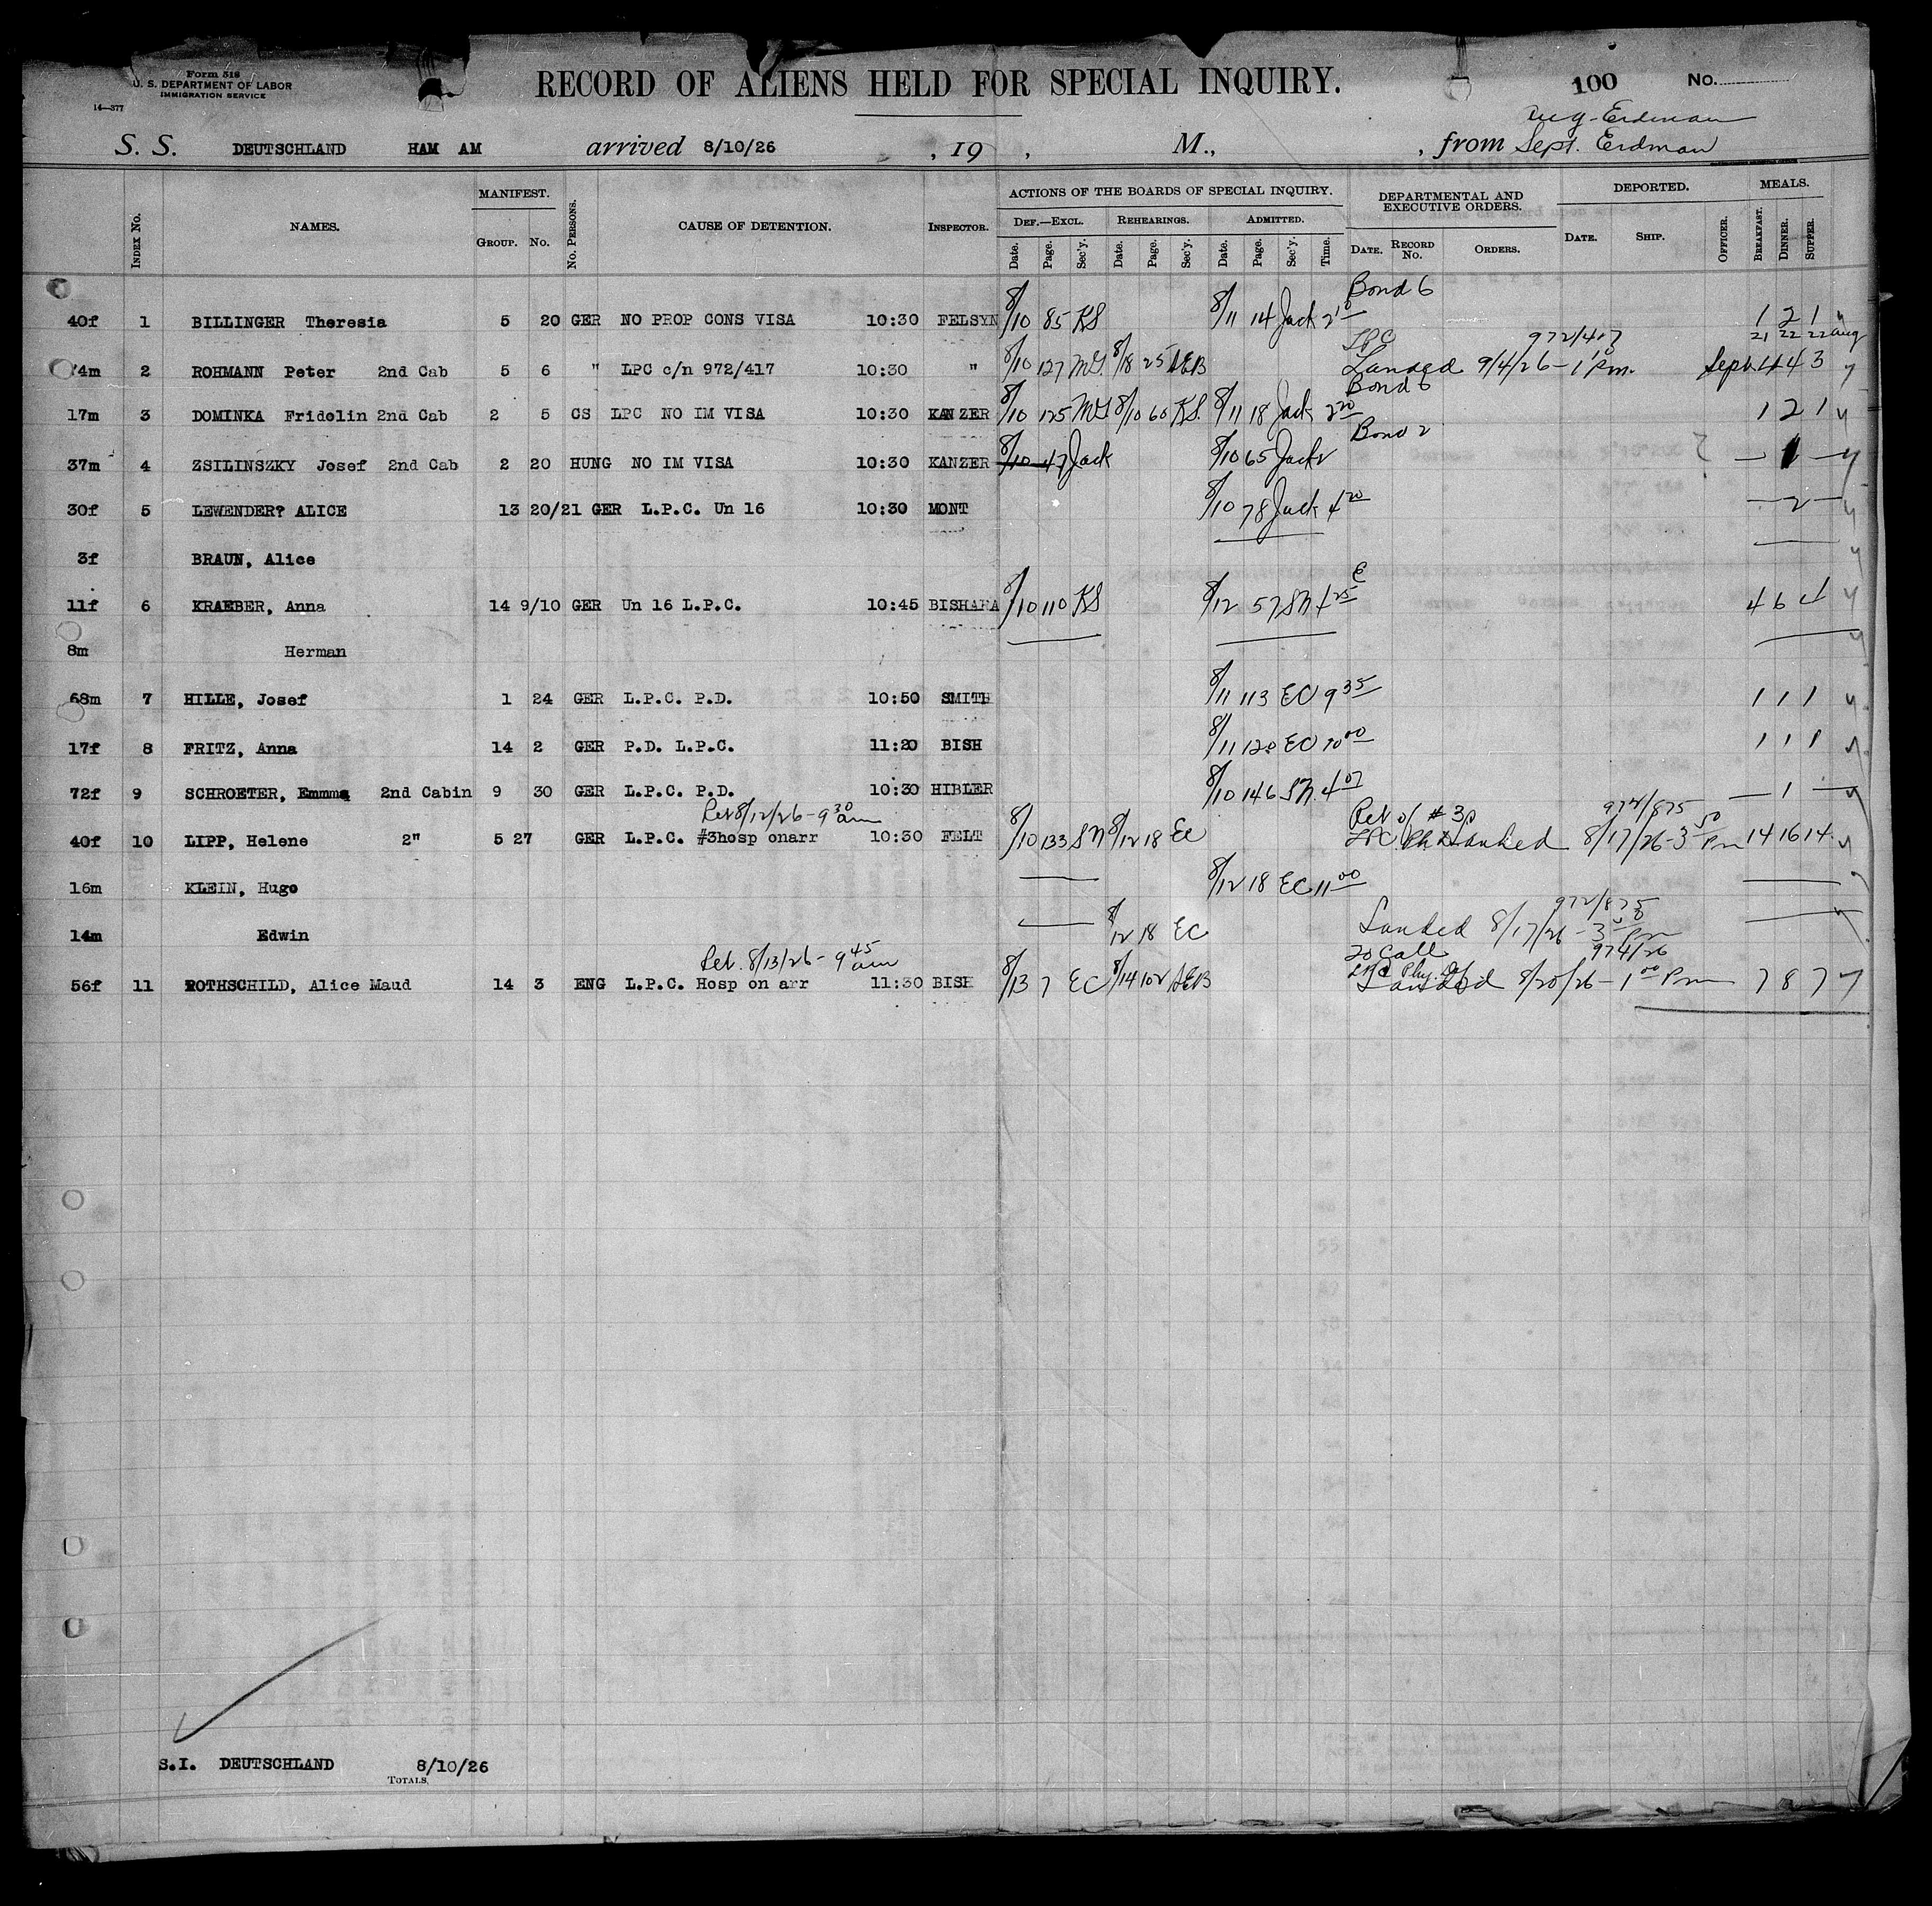 Form 518
U. S. DEPARTMENT OF LABOR
IMMIGRATION SERVICE
14—377
RECORD OF ALIENS HELD FOR SPECIAL INQUIRY.
100 No.
Aug - Erdman
S. S. DEUTSCHLAND HAM AM arrived 8/10/26 , 19 , M., , from Sept. Erdman
INDEX No. NAMES. MANIFEST. GROUP. No. No. PERSONS. CAUSE OF DETENTION. INSPECTOR. ACTIONS OF THE BOARDS OF SPECIAL INQUIRY. DEF.—EXCL. REHEARINGS. ADMITTED. DEPARTMENTAL AND EXECUTIVE ORDERS. DEPORTED. MEALS.
Date. Page. Sec'y. Date. Page. Sec'y. Date. Page. Sec'y. Time. DATE. RECORD No. ORDERS. DATE. SHIP. OFFICER. BREAKFAST. DINNER. SUPPER.
Bond 6
40f 1 BILLINGER Theresia 5 20 GER NO PROP CONS VISA 10:30 FELSYN 8/10 85 KS 8/11 14 Jack 1 2 1
LPC 972/417 21 22 22 Aug
74m 2 ROHMANN Peter 2nd Cab 5 6 " LPC c/n 972/417 10:30 " 8/10 127 MG 8/18 25 AEB Landed 9/4/26 - 1 Pm. Sept 4 4 3
Bond 6
17m 3 DOMINKA Fridolin 2nd Cab 2 5 CS LPC NO IM VISA 10:30 KANZER 8/10 125 MG 8/10 60 KS 8/11 18 Jack 2 20 1 2 1
Bond 2
37m 4 ZSILINSZKY Josef 2nd Cab 2 20 HUNG NO IM VISA 10:30 KANZER 8/10 47 Jack 8/10 65 Jack ? — 1 —
30f 5 LEWENDER? ALICE 13 20/21 GER L.P.C. Un 16 10:30 MONT 8/10 78 Jack 4 20 — 2 —
3f BRAUN, Alice
11f 6 KRAEBER, Anna 14 9/10 GER Un 16 L.P.C. 10:45 BISHARA 8/10 110 KS 8/12 57 SN 4 25 4 6 4
8m Herman
68m 7 HILLE, Josef 1 24 GER L.P.C. P.D. 10:50 SMITH 8/11 113 EC 9 35 1 1 1
17f 8 FRITZ, Anna 14 2 GER P.D. L.P.C. 11:20 BISH 8/11 120 EC 10 00 1 1 1
72f 9 SCHROETER, Emmma 2nd Cabin 9 30 GER L.P.C. P.D. 10:30 HIBLER 8/10 146 SN 4 07 — 1 —
Ret 8/12/26 - 9 30 am Ret of #3 972/875
40f 10 LIPP, Helene 2" 5 27 GER L.P.C. #3hosp onarr 10:30 FELT 8/10 133 SN 8/12 18 EC LPC Landed 8/17/26 - 3 50 Pm 14 16 14
16m KLEIN, Hugo 8/12 18 EC 11 00
972/875
14m Edwin 8/12 18 EC Landed 8/17/26 - 3 Pm
Ret. 8/13/26 - 9 45 am To Call 974/26
56f 11 ROTHSCHILD, Alice Maud 14 3 ENG L.P.C. Hosp on arr 11:30 BISH 8/13 7 EC 8/14 102 AEB LPC Phy. Df Landed 8/20/26 - 1 00 Pm 7 8 7
S.I. DEUTSCHLAND 8/10/26
TOTALS.